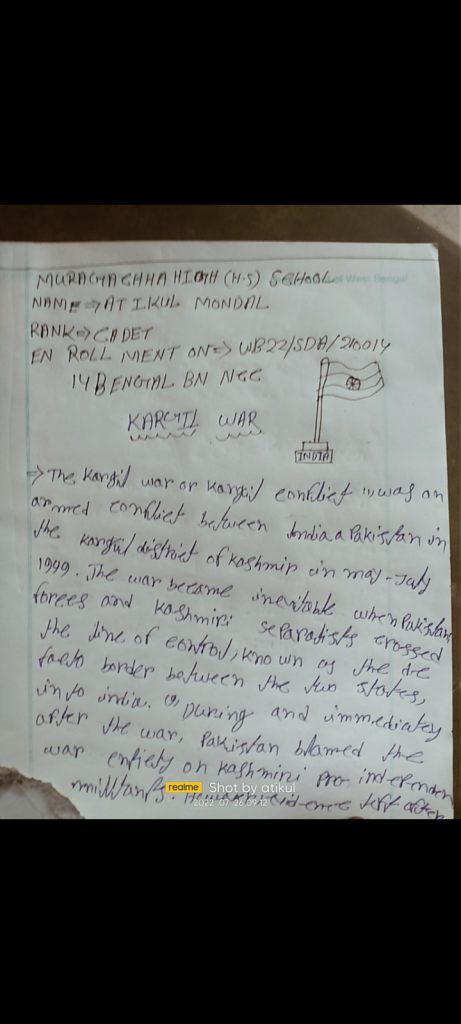 MURAGACHHA HIGH (H.S) SCHOOL of West Bengal
NAME ⇒ ATIKUL MONDAL
RANK ⇒ CADET
EN ROLL MENT ON ⇒ WB22/SDA/210014
14 BENGAL BN NCC
KARGIL WAR
INDIA
→ The Kargil war or Kargil conflict was an
armed conflict between India a Pakistan in
the kargil district of kashmir in may - July
1999. The war became inevitable when Pakistan
forces and kashmiri separatists crossed
the line of control, known as the de
facto border between the two states,
into india. During and immediately
after the war, Pakistan blamed the
war entirely on kashmiri pro independen
militants. left after
realme Shot by atikul
2022-07-26 09:12